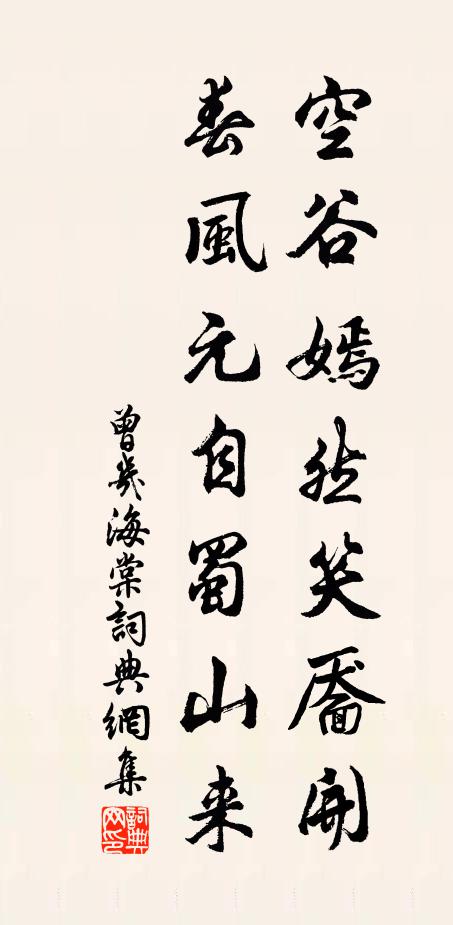 空谷嫣然笑靨開
春風元自蜀山来
曾幾海棠詞典網集
詞典網印